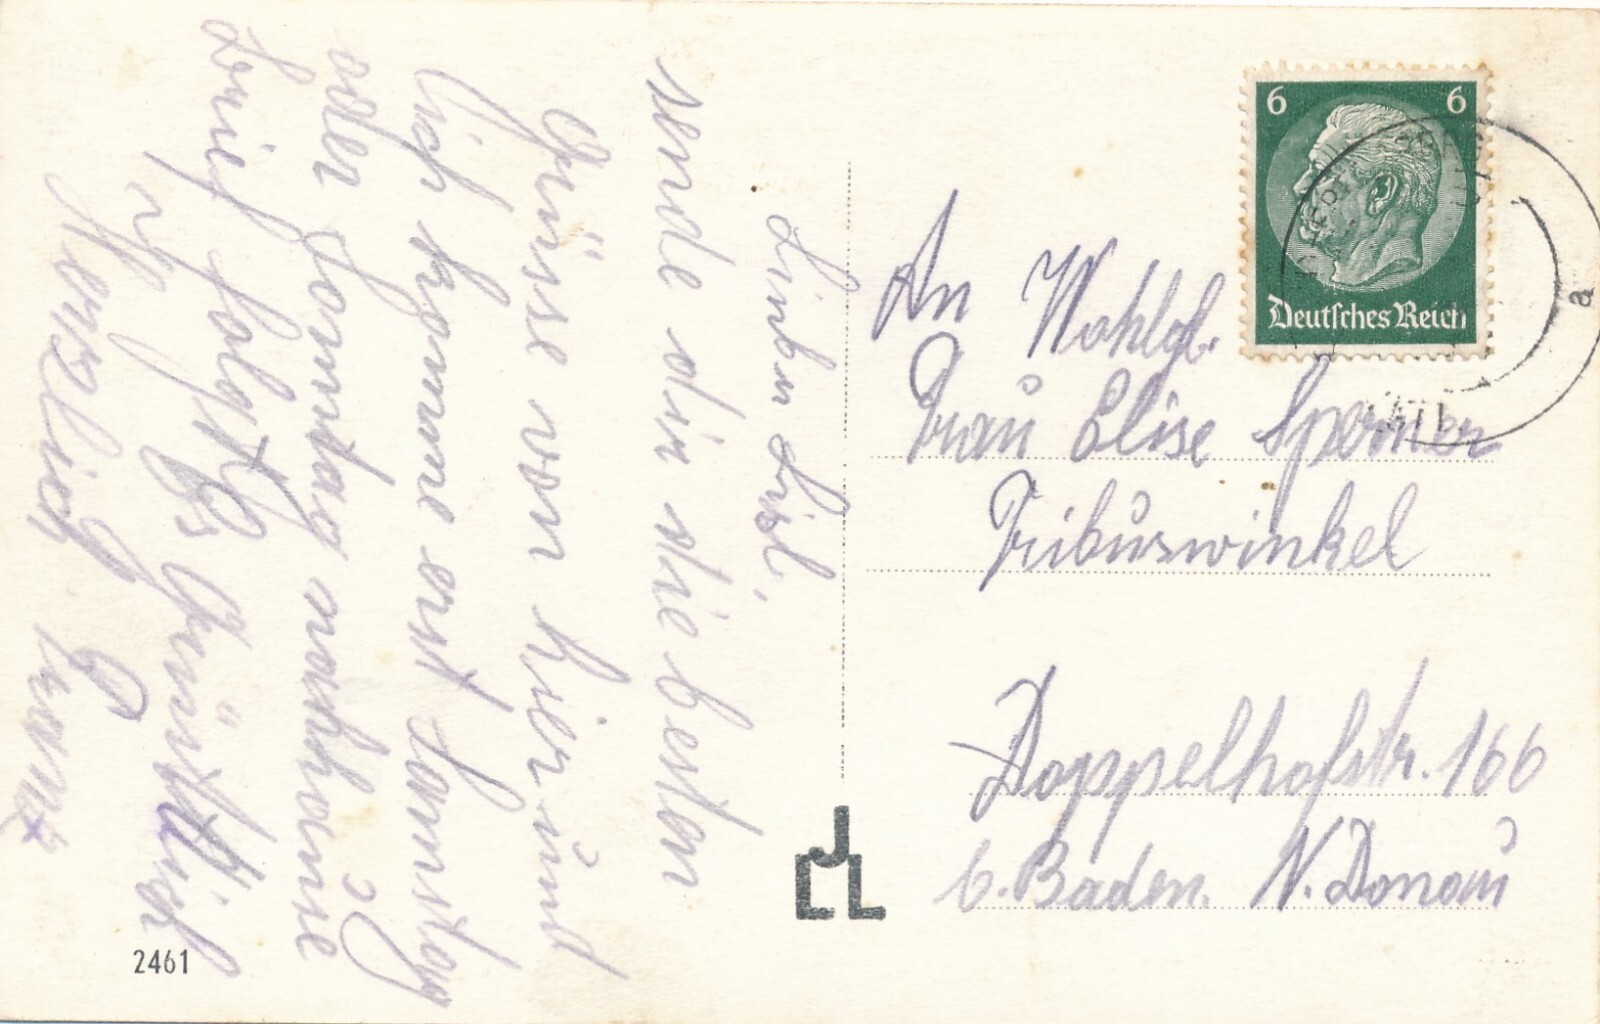 Liebe Lisl,
sende dir die besten
Grüsse von hier und
ich komme erst Samstag
oder Sonntag nachhause
Brief folgt. Es
Herzlich Franz
2461
JLL
6 6
Deutsches Reich
a
An Wohlgb.
Frau Elise Sperner
Tribuswinkel
Doppelhofstr. 166
b. Baden. N. Donau